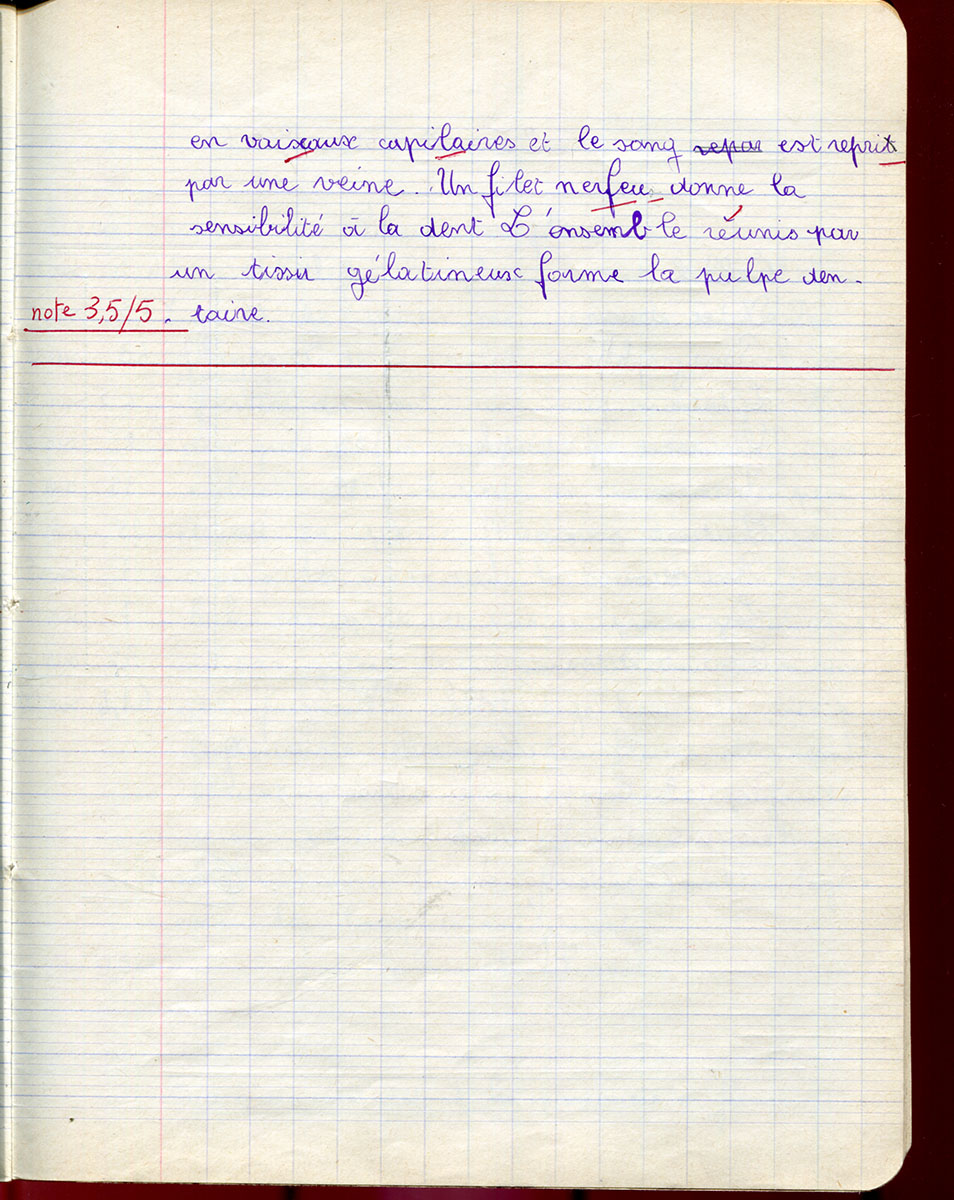 en vaiseaux capilaires et le sang repar est reprit
par une veine. Un filet nerfeu donne la
sensibilité à la dent L'énsemble réunis par
un tissu gélatineux forme la pulpe den-
note 3,5/5. taire.